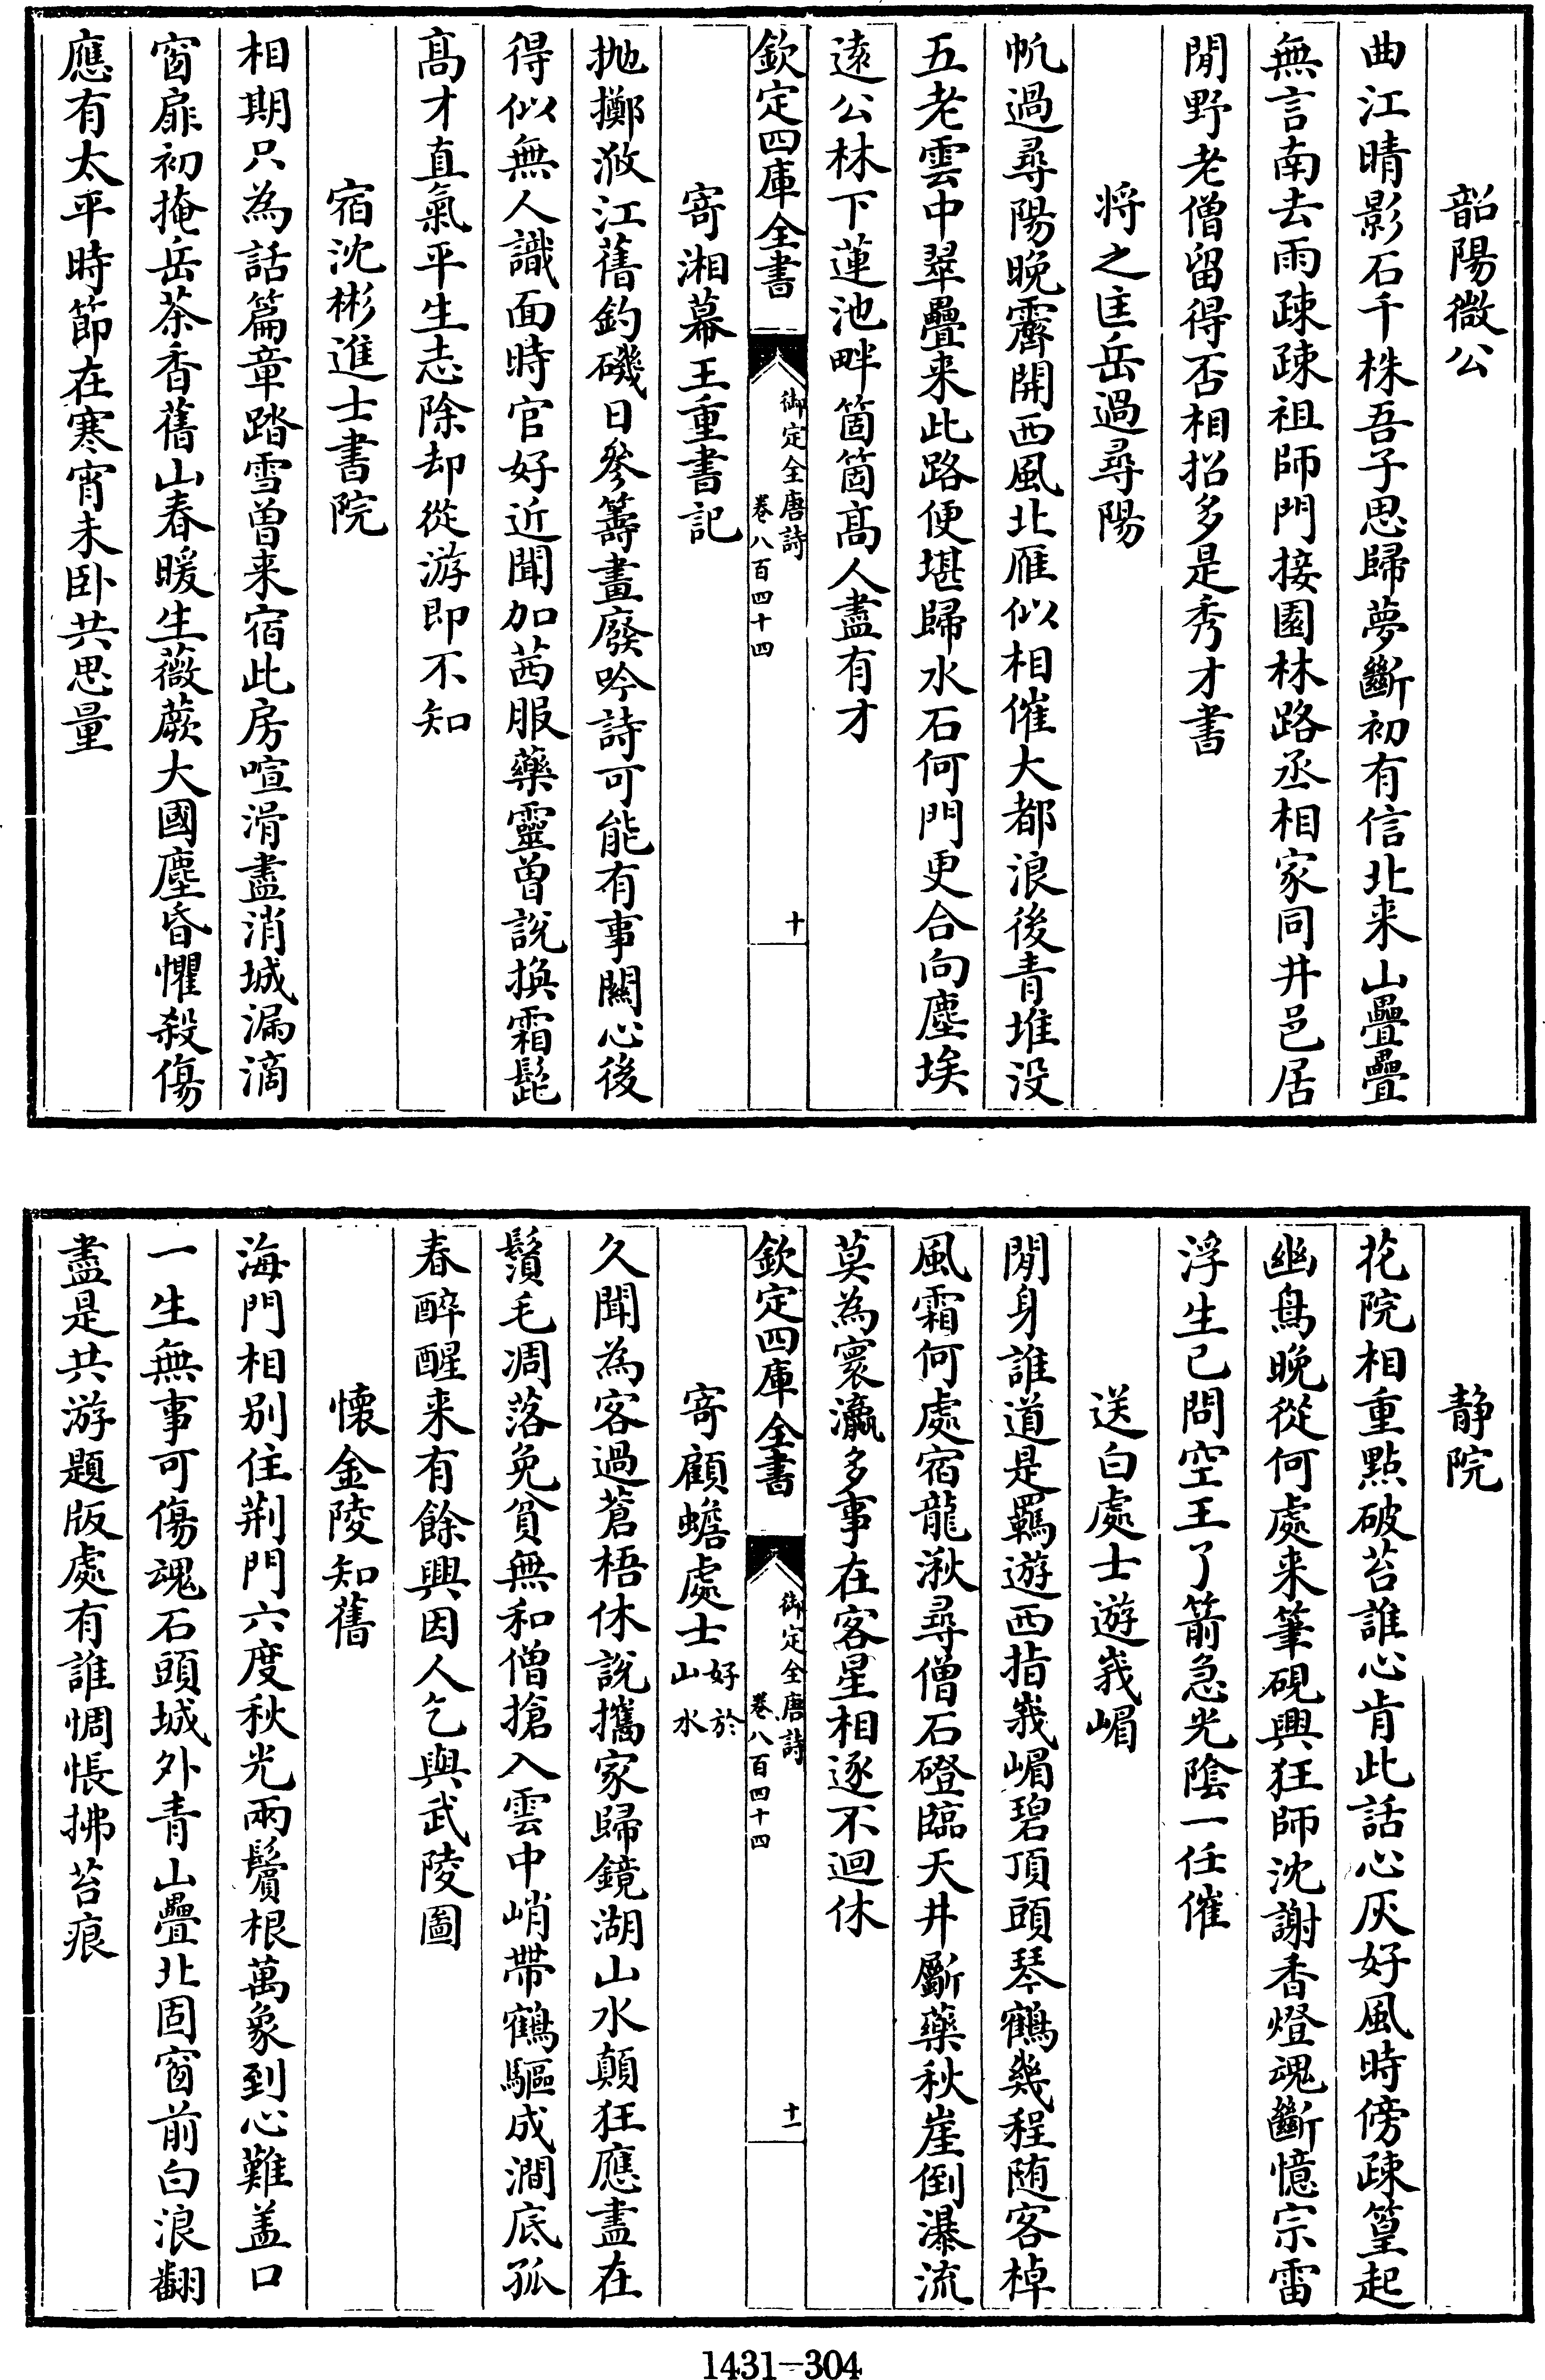 韶陽微公
曲江晴影石千株吾子思歸夢斷初有信北来山疊疊
無言南去雨疎疎祖師門接園林路丞相家同井邑居
閒野老僧留得否相招多是秀才書
将之匡岳過尋陽
帆過尋陽晚霽開西風北雁似相催大都浪後青堆没
五老雲中翠疊来此路便堪歸水石何門更合向塵埃
逺公林下蓮池畔箇箇髙人盡有才
欽定四庫全書
御定全唐詩
卷八百四十四
十
寄湘幕王重書記
抛擲㳺江舊釣磯日參籌畫廢吟詩可能有事關心後
得似無人識面時官好近聞加茜服藥靈曾說換霜髭
髙才直氣平生志除却從游即不知
宿沈彬進士書院
相期只為話篇章踏雪曾来宿此房喧滑盡消城漏滴
窗扉初掩岳茶香舊山春暖生薇蕨大國塵昏懼殺傷
應有太平時節在寒宵未卧共思量
静院
花院相重點破苔誰心肯此話心灰好風時傍疎篁起
幽鳥晚從何處来筆硯興狂師沈謝香燈魂斷憶宗雷
浮生已問空王了箭急光陰一任催
送白處士遊峩嵋
閒身誰道是羈遊西指峩嵋碧頂頭琴鶴幾程随客棹
風霜何處宿龍湫尋僧石磴臨天井斸藥秋崖倒瀑流
莫為寰瀛多事在客星相逐不迴休
欽定四庫全書
御定全唐詩
卷八百四十四
十一
寄顧蟾處士好於山水
久聞為客過蒼梧休說攜家歸鏡湖山水顛狂應盡在
鬢毛凋落免貧無和僧搶入雲中峭帶鶴驅成澗底孤
春醉醒来有餘興因人乞與武陵圖
懷金陵知舊
海門相別住荆門六度秋光兩鬢根萬象到心難盖口
一生無事可傷魂石頭城外青山疊北固窗前白浪翻
盡是共游題版處有誰惆悵拂苔痕
1431-304